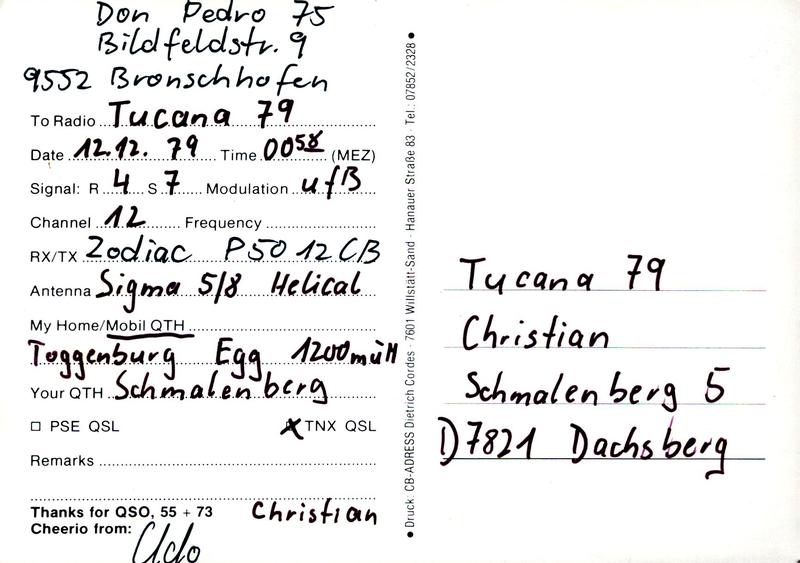 Don Pedro 75
Bildfeldstr. 9
9552 Bronschhofen
To Radio Tucana 79
Date 12.12. 79 Time 00 58 (MEZ)
Signal: R 4 S 7 Modulation ufB
Channel 12 Frequency
RX/TX Zodiac P50 12 CB
Antenna Sigma 5/8 Helical
My Home/Mobil QTH
Toggenburg Egg 1200 müM
Your QTH Schmalenberg
□ PSE QSL X TNX QSL
Remarks
Thanks for QSO, 55 + 73 Christian
Cheerio from: Udo
● Druck: CB-ADRESS Dietrich Cordes · 7601 Willstätt-Sand · Hanauer Straße 83 · Tel.: 07852/2328 ●
Tucana 79
Christian
Schmalenberg 5
D7821 Dachsberg